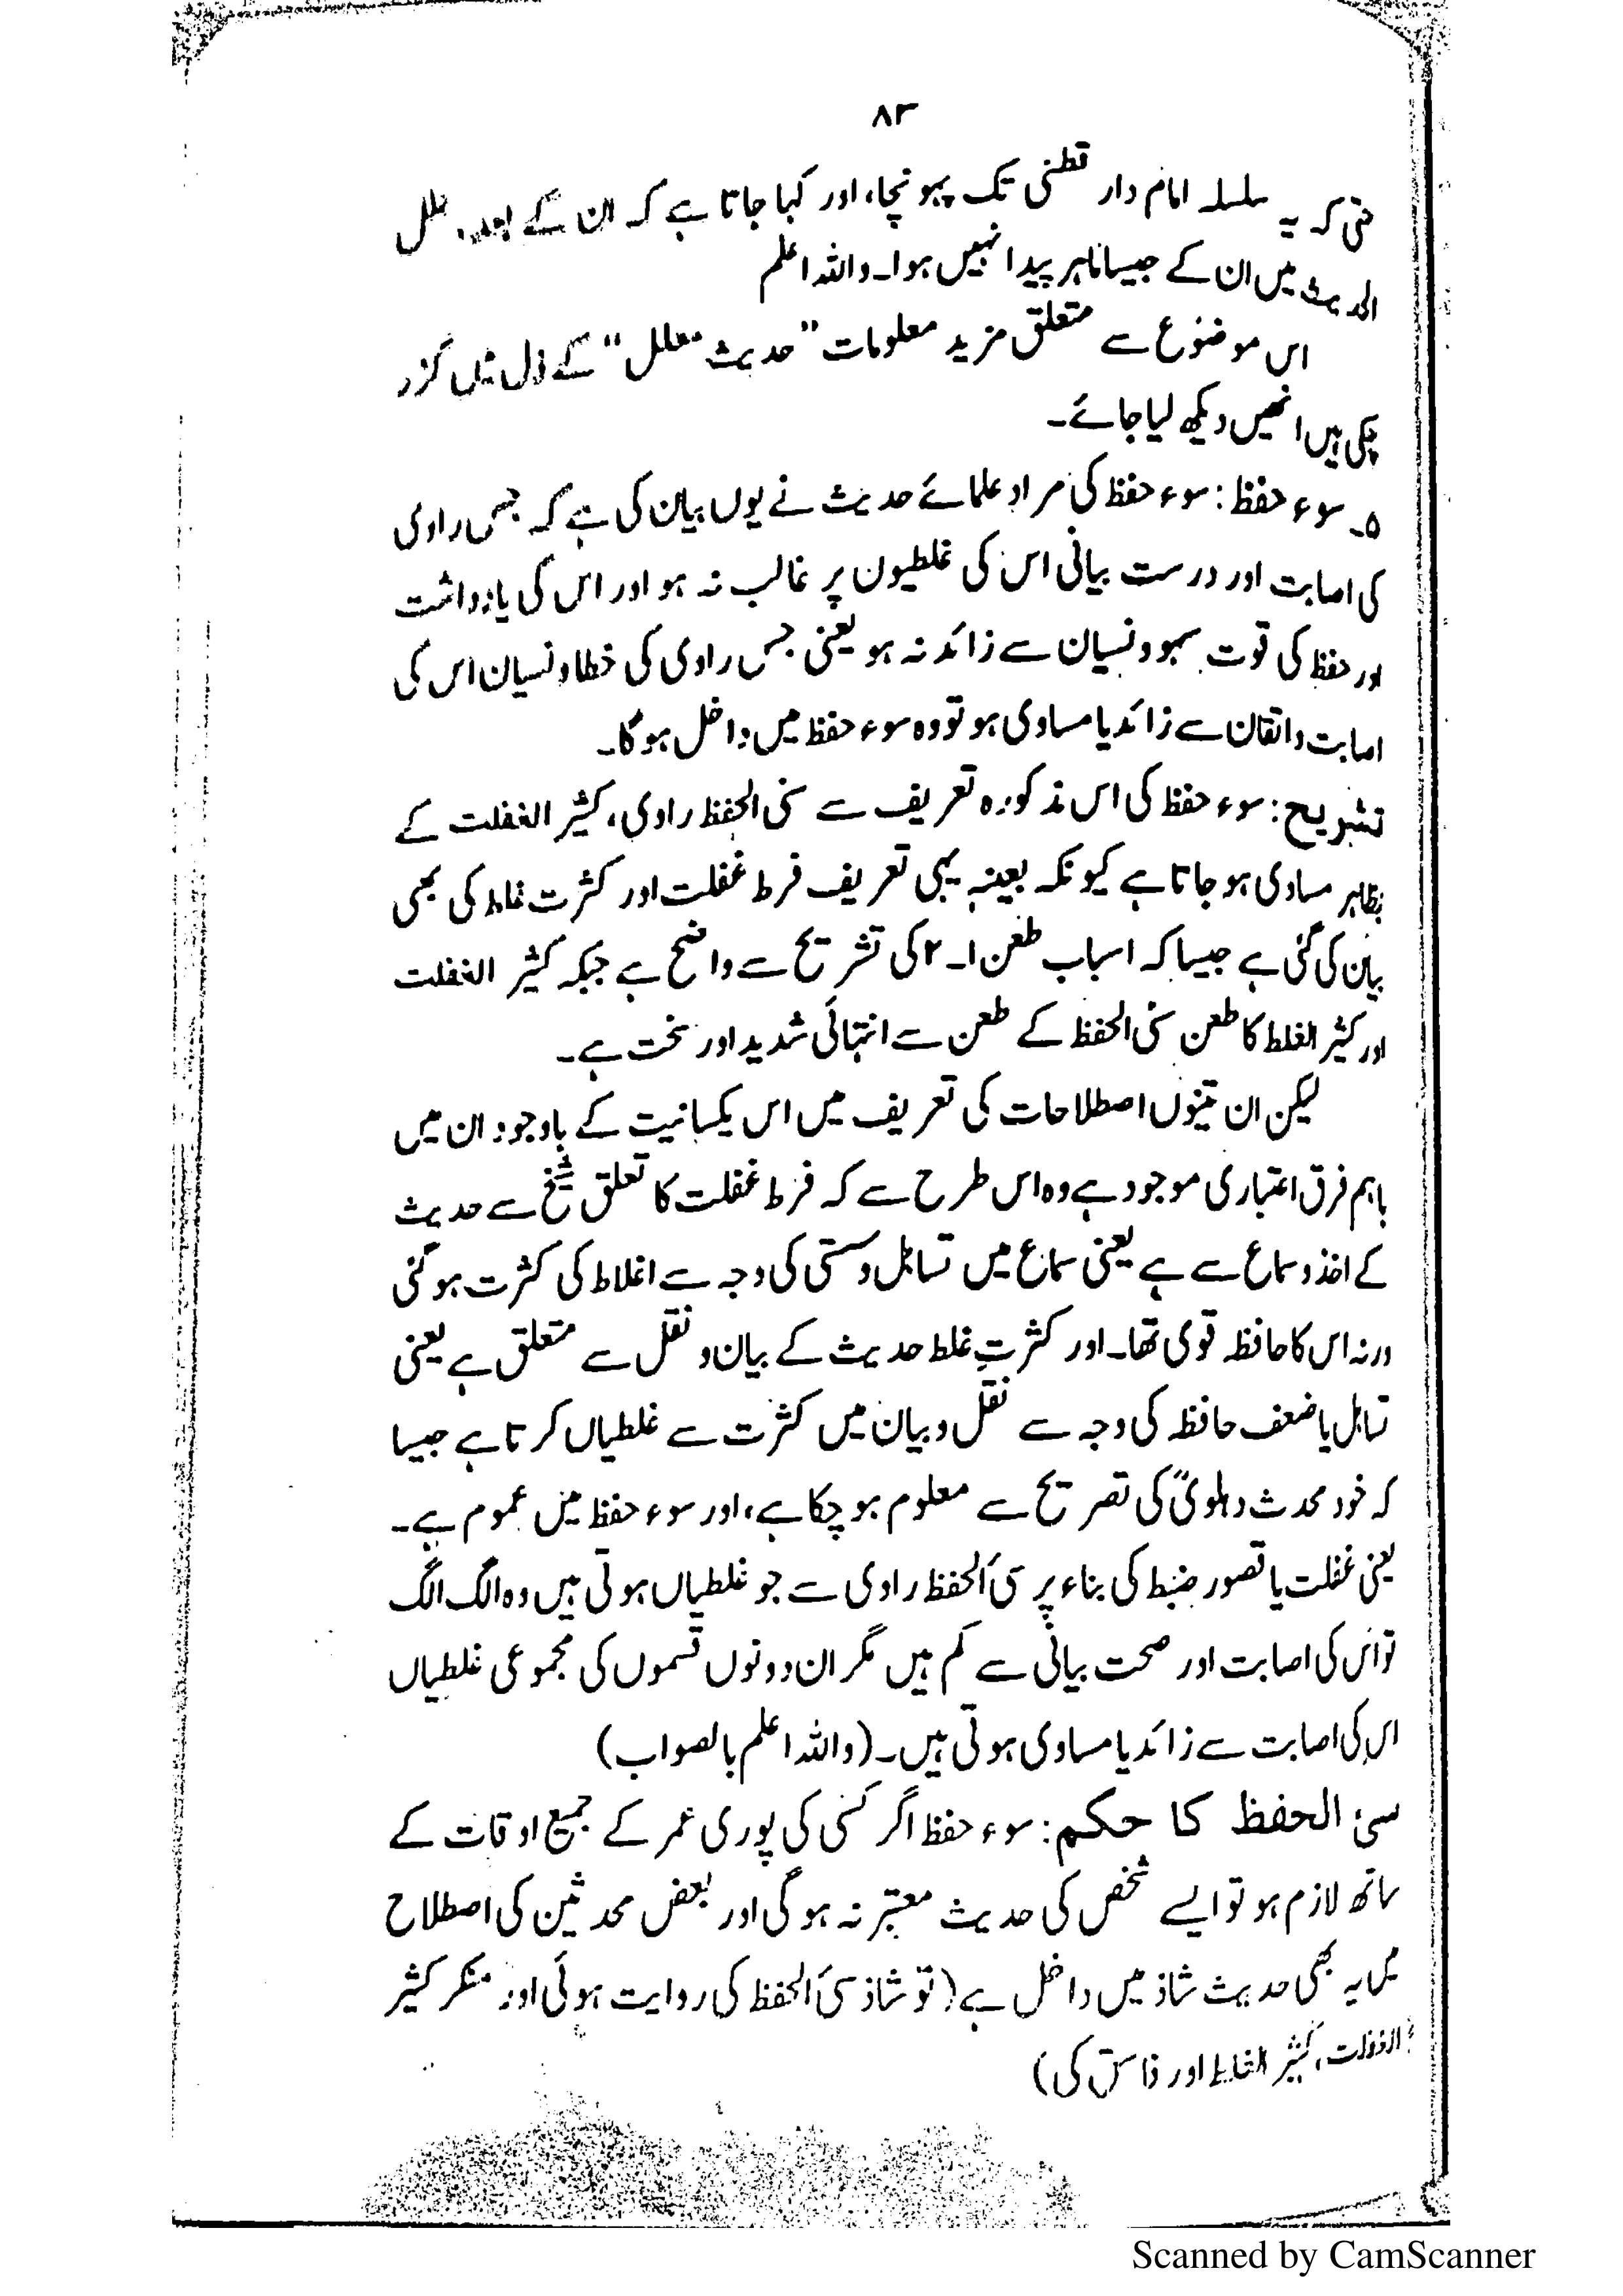 ۸۳
حتی کہ یہ سلسلہ امام دار قطنی تک پہونچا، اور کہا جاتا ہے کہ ان کے بعد علل
الحدیث میں ان کے جیسا ماہر پیدا نہیں ہوا۔ واللہ اعلم
اس موضوع سے متعلق مزید معلومات "حدیث معلل" کے ذیل میں گزر
چکی ہیں انھیں دیکھ لیا جائے۔
۵۔ سوء حفظ: سوء حفظ کی مراد علمائے حدیث نے یوں بیان کی ہے کہ جس راوی
کی اصابت اور درست بیانی اس کی غلطیوں پر غالب نہ ہو اور اس کی یادداشت
اور حفظ کی قوت سہو ونسیان سے زائد نہ ہو یعنی جس راوی کی خطا ونسیان اس کی
اصابت واتقان سے زائد یا مساوی ہو تو وہ سوء حفظ میں داخل ہوگا۔
تشریح: سوء حفظ کی اس مذکورہ تعریف سے سئی الحفظ راوی، کثیر الغفلت کے
بظاہر مساوی ہو جاتا ہے کیونکہ بعینہٖ یہی تعریف فرط غفلت اور کثرت غلط کی بھی
بیان کی گئی ہے جیسا کہ اسباب طعن ۱۔ ۲ کی تشریح سے واضح ہے جبکہ کثیر الغفلت
اور کثیر الغلط کا طعن سئی الحفظ کے طعن سے انتہائی شدید اور سخت ہے۔
لیکن ان تینوں اصطلاحات کی تعریف میں اس یکسانیت کے باوجود ان میں
باہم فرق اعتباری موجود ہے وہ اس طرح سے کہ فرط غفلت کا تعلق شیخ سے حدیث
کے اخذ وسماع سے ہے یعنی سماع میں تساہل وسستی کی وجہ سے اغلاط کی کثرت ہوگئی
ورنہ اس کا حافظہ قوی تھا۔ اور کثرتِ غلط حدیث کے بیان ونقل سے متعلق ہے یعنی
تساہل یا ضعف حافظہ کی وجہ سے نقل وبیان میں کثرت سے غلطیاں کرتا ہے جیسا
کہ خود محدث دہلویؒ کی تصریح سے معلوم ہو چکا ہے، اور سوء حفظ میں عموم ہے۔
یعنی غفلت یا قصور ضبط کی بناء پر سیٔ الحفظ راوی سے جو غلطیاں ہوتی ہیں وہ الگ الگ
تو اس کی اصابت اور صحت بیانی سے کم ہیں مگر ان دونوں قسموں کی مجموعی غلطیاں
اس کی اصابت سے زائد یا مساوی ہوتی ہیں۔ (واللہ اعلم بالصواب)
سئ الحفظ کا حکم: سوء حفظ اگر کسی کی پوری عمر کے جمیع اوقات کے
ساتھ لازم ہو تو ایسے شخص کی حدیث معتبر نہ ہوگی اور بعض محدثین کی اصطلاح
میں یہ بھی حدیث شاذ میں داخل ہے (تو شاذ سیٔ الحفظ کی روایت ہوئی اور منکر کثیر
الغفلت، کثیر الغلط اور فاسق کی)
Scanned by CamScanner